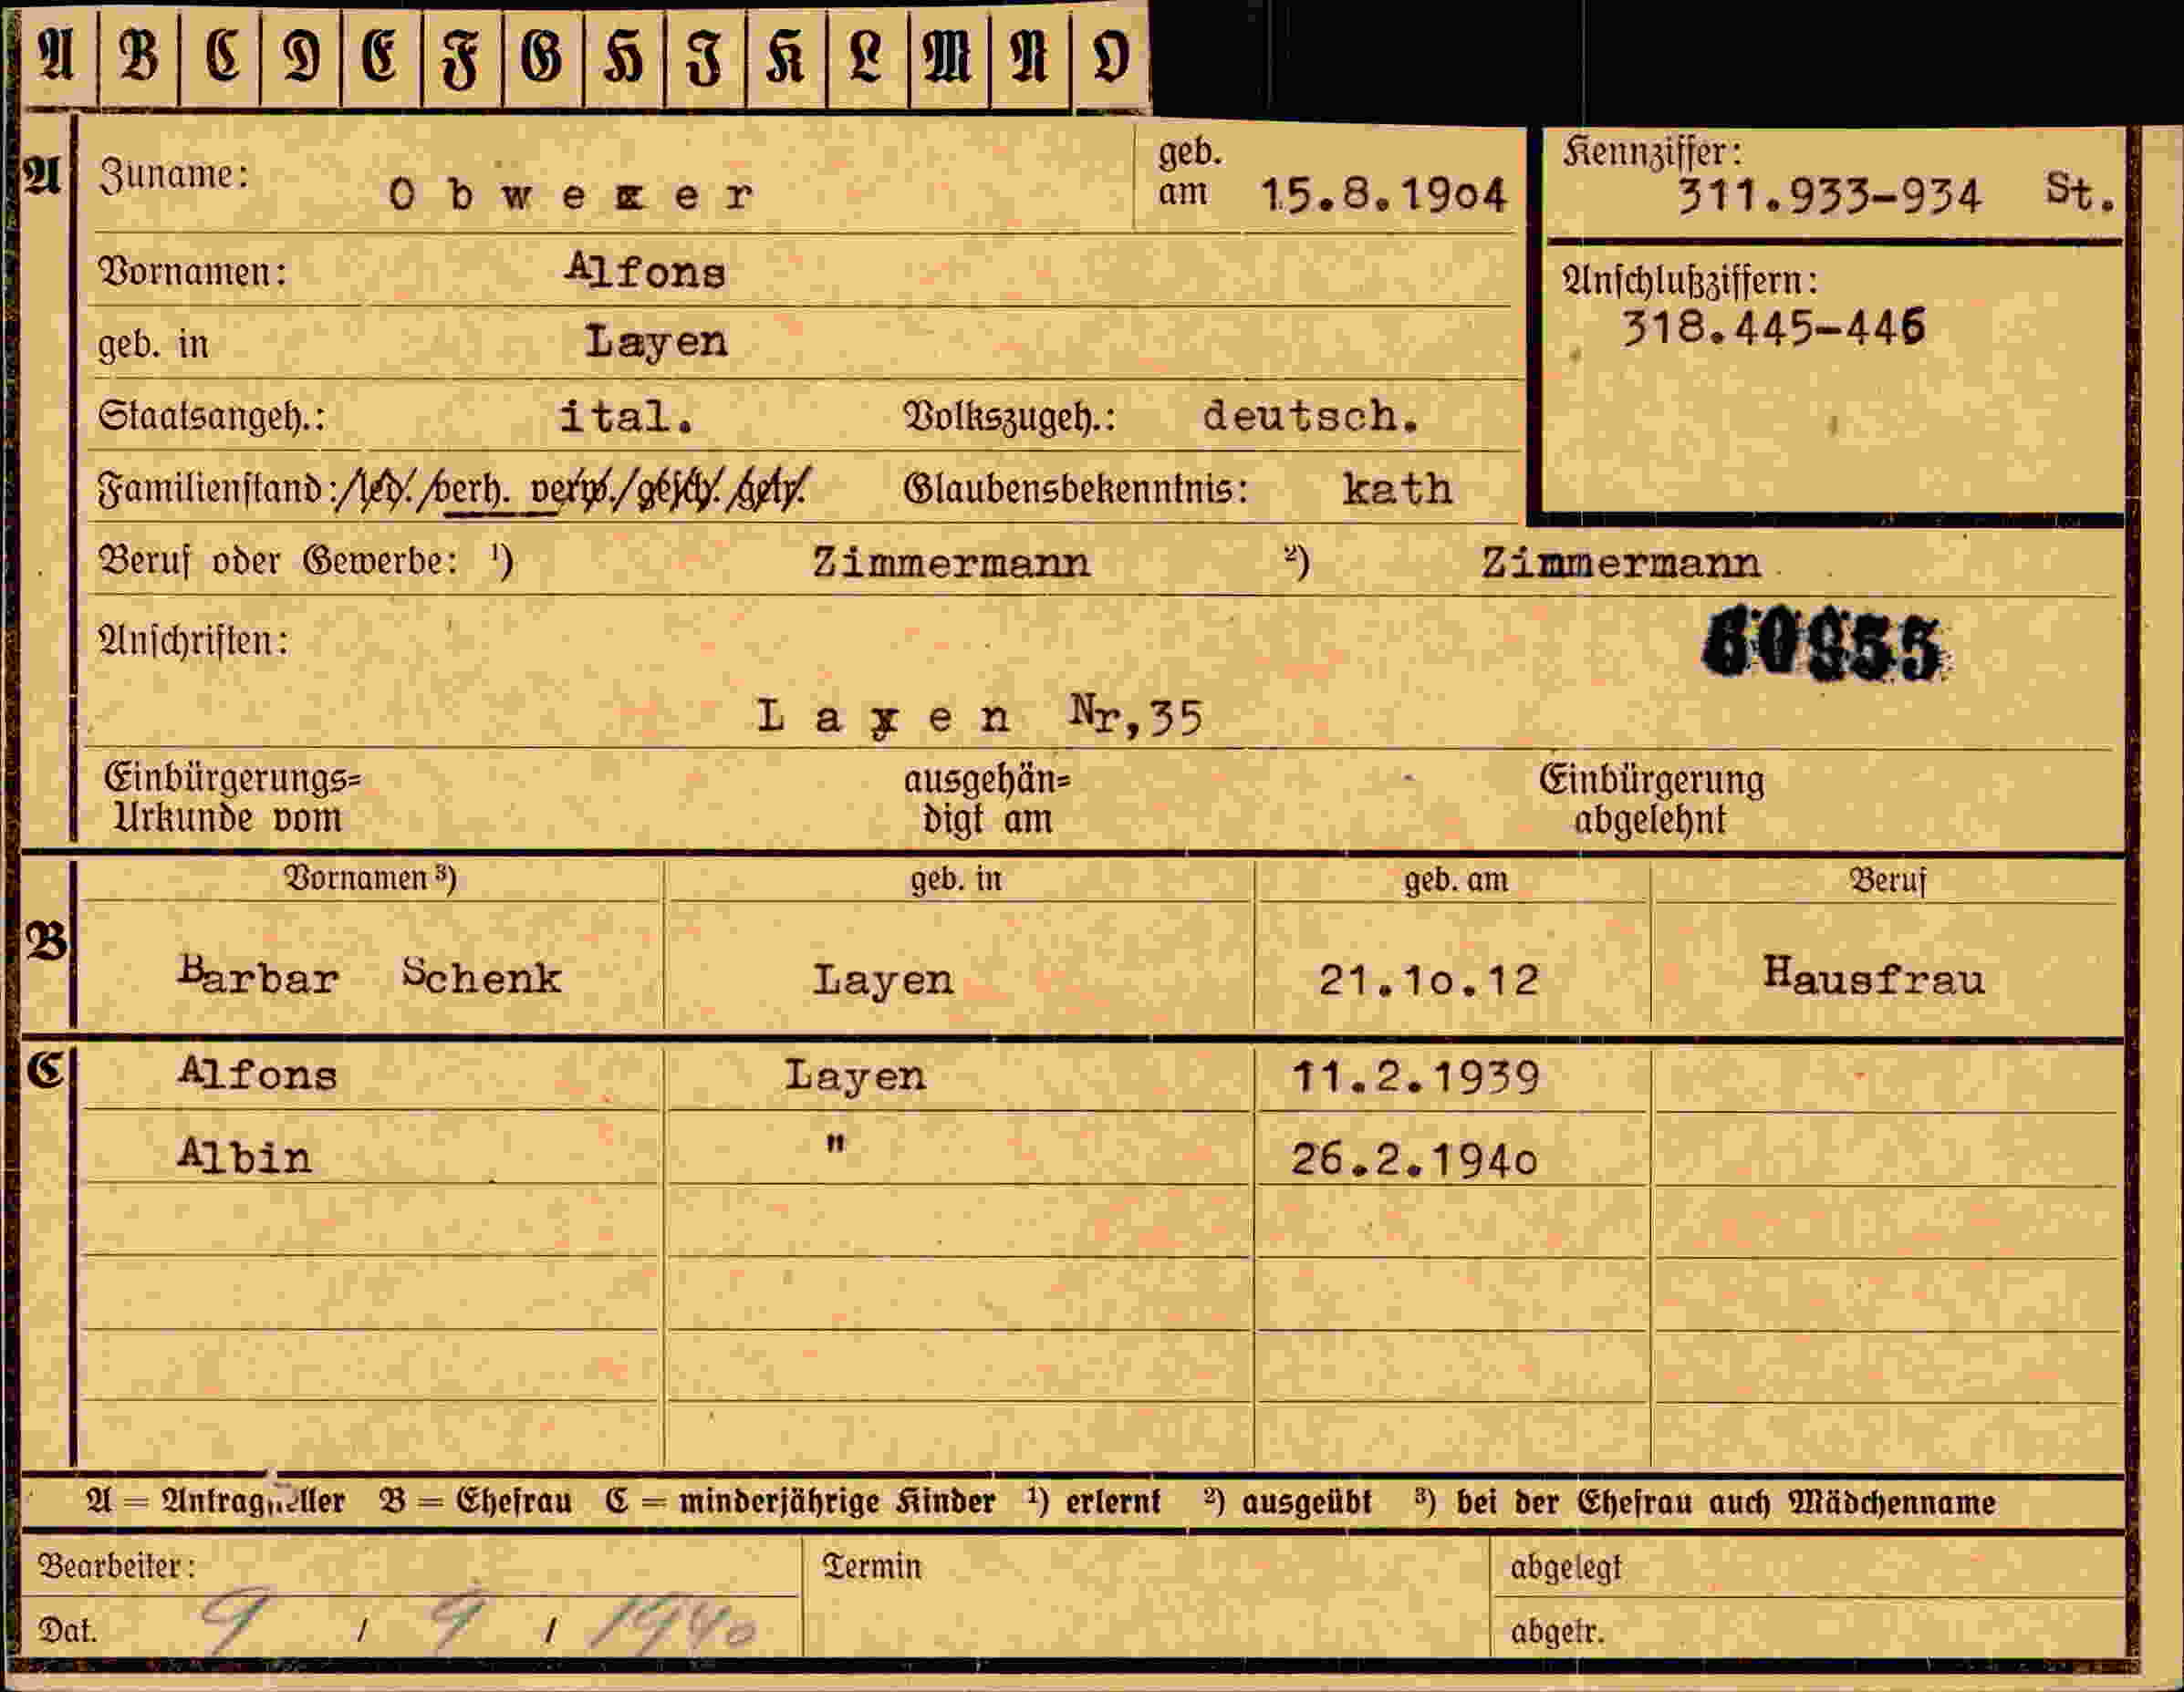 A B C D E F G H I K L M N O
A Zuname: Obwexer geb. am 15.8.1904 Kennziffer: 311.933-934 St.
Vornamen: Alfons Anschlußziffern:
318.445-446
geb. in Layen
Staatsangeh.: ital. Volkszugeh.: deutsch.
Familienstand: led. verh. verw. gesch. getr. Glaubensbekenntnis: kath
Beruf oder Gewerbe: ¹) Zimmermann ²) Zimmermann
Anschriften:
Layen Nr,35
Einbürgerungs= ausgehän= Einbürgerung
Urkunde vom digt am abgelehnt
Vornamen ³) geb. in geb. am Beruf
B Barbar Schenk Layen 21.10.12 Hausfrau
C Alfons Layen 11.2.1939
Albin " 26.2.1940
A = Antragsteller B = Ehefrau C = minderjährige Kinder ¹) erlernt ²) ausgeübt ³) bei der Ehefrau auch Mädchenname
Bearbeiter: Termin abgelegt
Dat. 9 / 9 / 1940 abgetr.